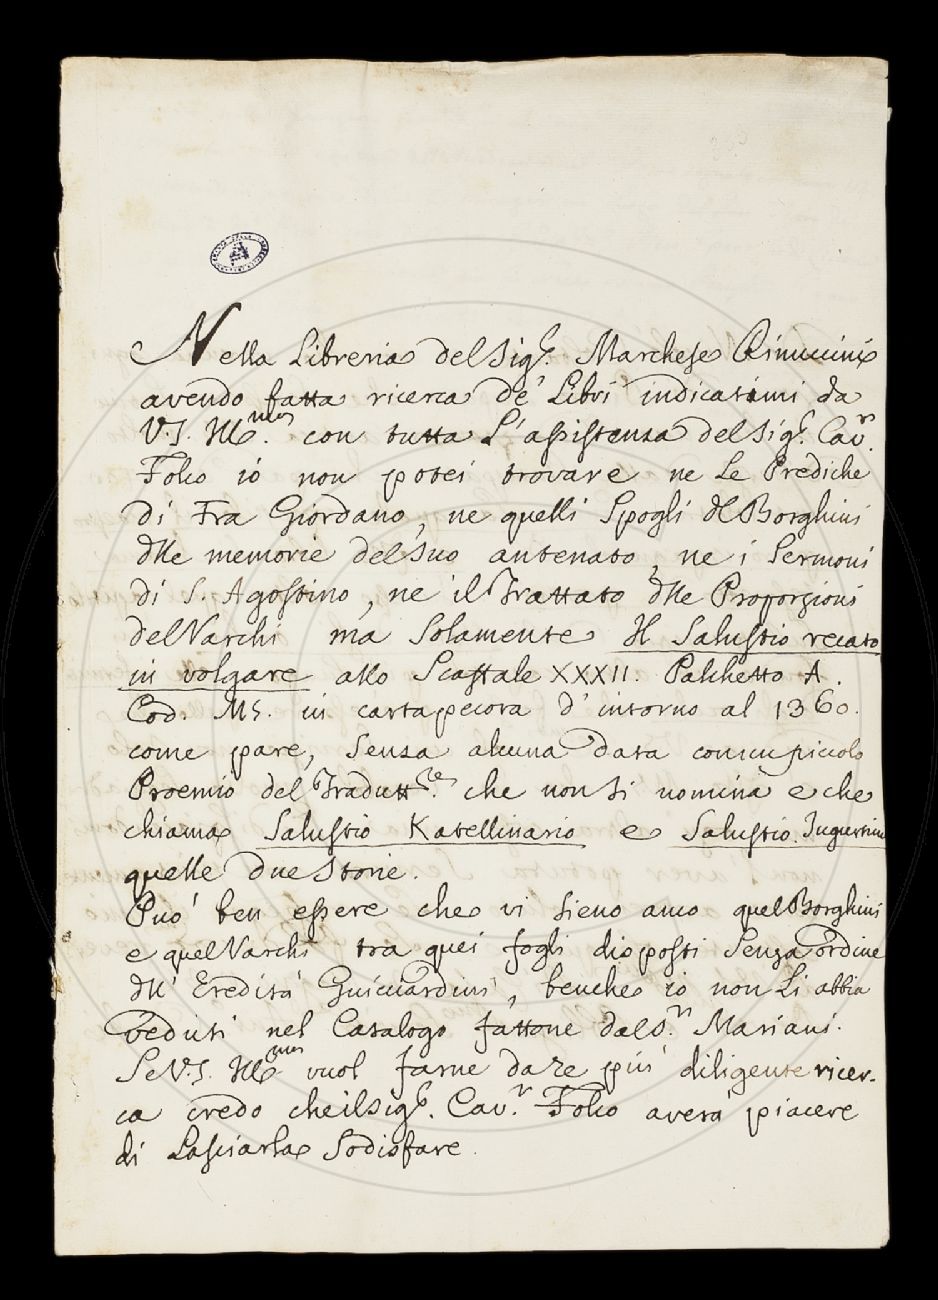 Nella Libreria del Sig.r Marchese Rinuccini
avendo fatta ricerca de' Libri indicatimi da
V.S. Ill.ma con tutta L'assistenza del Sig.r Cav.r
Folco io non potei trovare ne Le Prediche
di Fra Giordano, ne quelli Spogli del Borghini
delle memorie del Suo antenato, ne i Sermoni
di S. Agostino, ne il Trattato delle Proporzioni
del Varchi ma Solamente Il Salustio recato
in volgare allo Scaffale XXXII. Palchetto A.
Cod. MS. in cartapecora d'intorno al 1360.
come pare, Senza alcuna data con un piccolo
Proemio del Tradutt.re che non Si nomina e che
chiama Salustio Katellinario e Salustio Jugurtino
quelle due Storie.
Può ben essere che vi Sieno anco quel Borghini
e quel Varchi tra quei fogli disposti Senza ordine
dell' Eredità Guicciardini, benche io non Li abbia
veduti nel Catalogo fattone dal S.r Mariani.
Se V.S. Ill.ma vuol farne dare più diligente ricer-
ca credo che il Sig.r Cav.r Folco averà piacere
di Lasciarla Sodisfare.